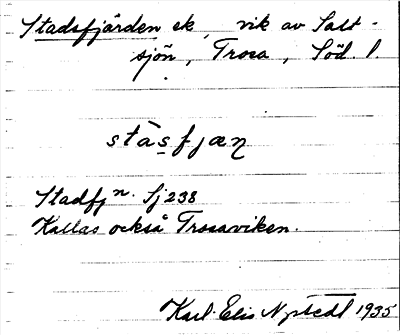 Stadsfjärden ek, vik av Salt-
sjön, Trosa, Söd. l.
stàsfjæɳ
Stadfjn. Sj 238
Kallas också Trosaviken.
Karl-Elis Nystedt 1935